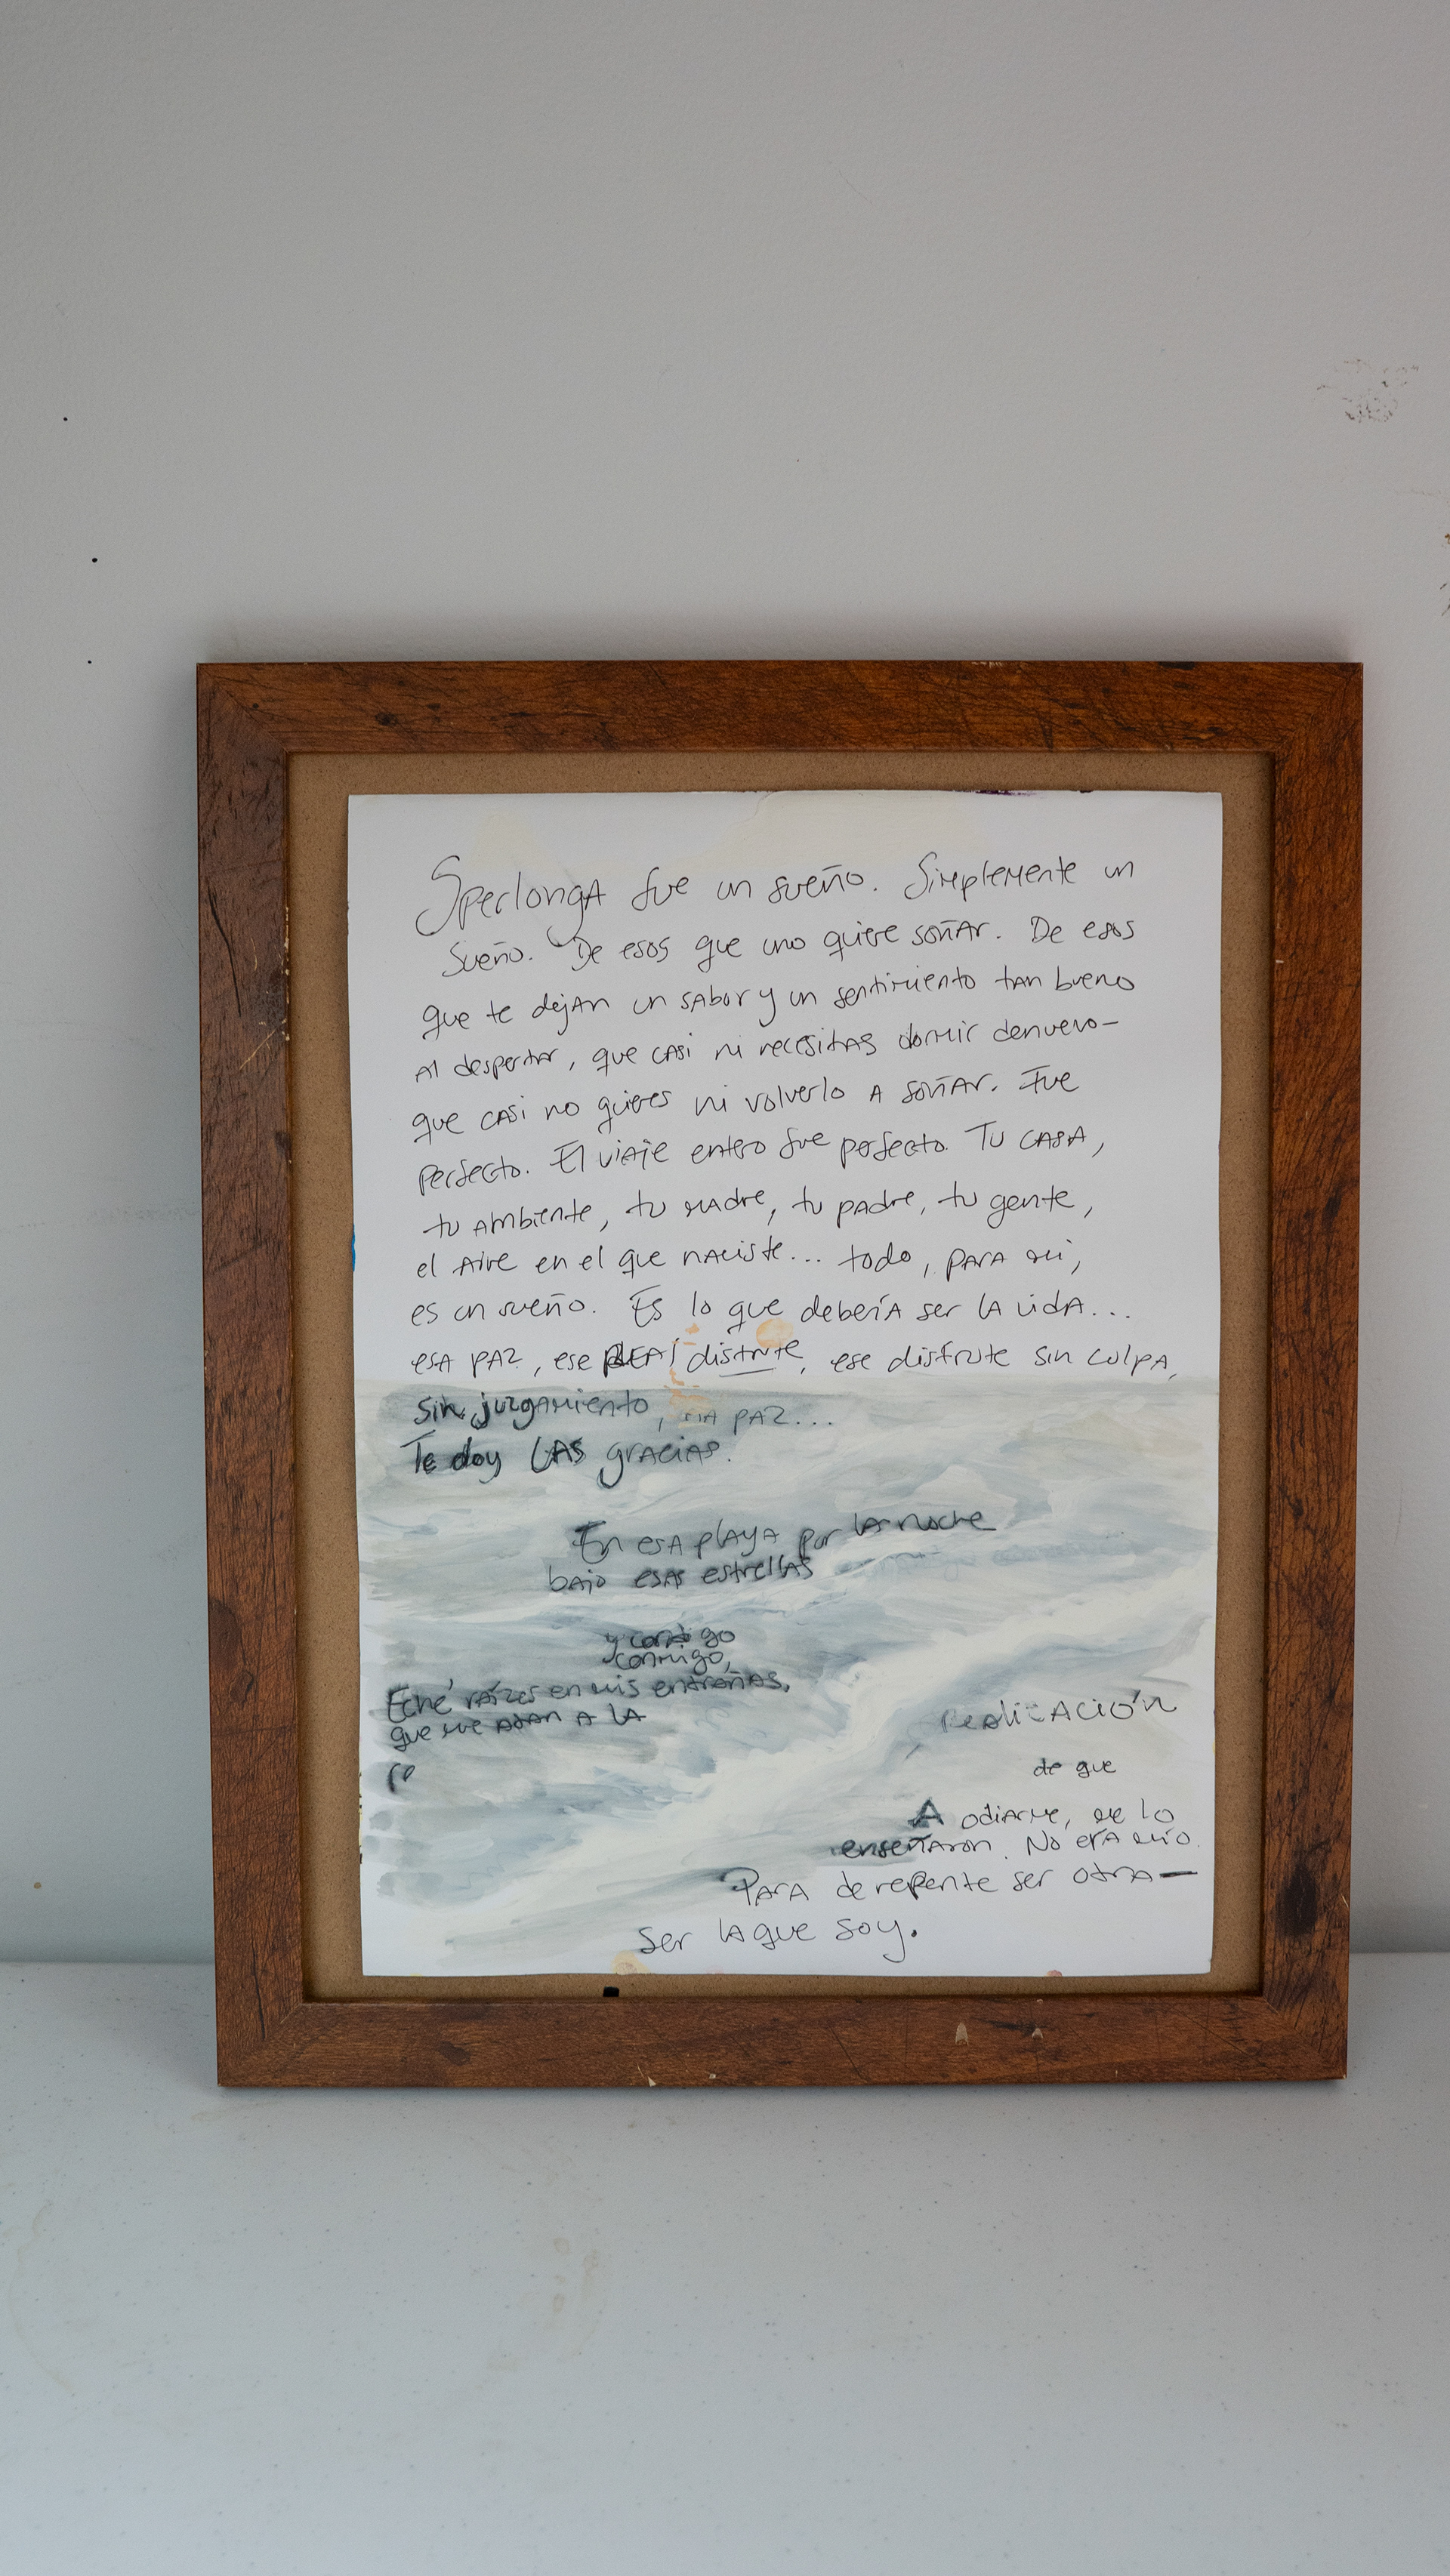 Sperlonga fue un sueño. Simplemente un
sueño. De esos que uno quiere soñar. De esos
que te dejan un sabor y un sentimiento tan bueno
al despertar, que casi ni necesitas dormir denuevo—
que casi no quieres ni volverlo a soñar. Fue
perfecto. El viaje entero fue perfecto. Tu casa,
tu ambiente, tu madre, tu padre, tu gente,
el aire en el que naciste... todo, para mi,
es un sueño. Es lo que debería ser la vida...
esa paz, ese disfrute, ese disfrute sin culpa,
sin juzgamiento, paz...
Te doy las gracias.
En esa playa por la noche
bajo esas estrellas
y contigo
conmigo,
Eché raízes en mis entrañas,
que me atan a la
realización
de que
A odiarme, me lo
enseñaron. No era mío.
Para de repente ser otra—
ser la que soy.